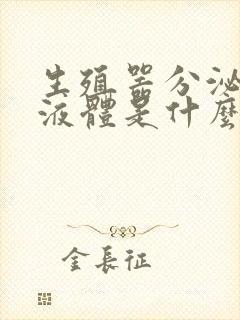 生殖器分泌
液體是什麼
金長征